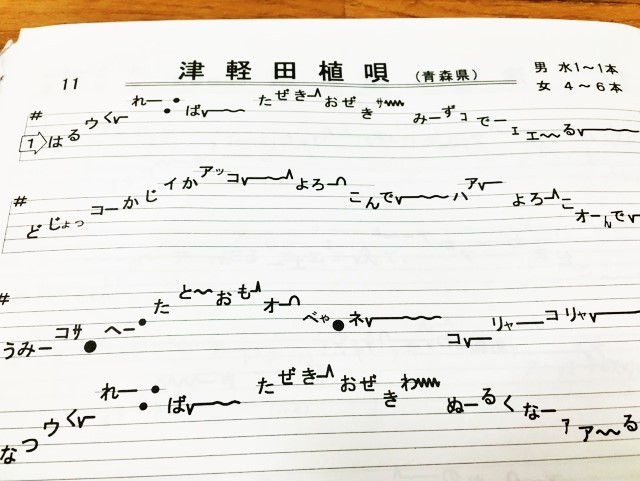 11 津軽田植唄 (青森県) 男 水1〜1本
女 4〜6本
# 1 はるウくれー ばたぜきーおぜきサみーずコでーェエ〜る
# どじょっコーかじイかアッコよろーこんでハアよろーこオーんで
# うみーコサへーたと〜おもオーべゃネコリャーコリャ
なつウくれーばたぜきーおぜきわぬーるくなーァア〜る